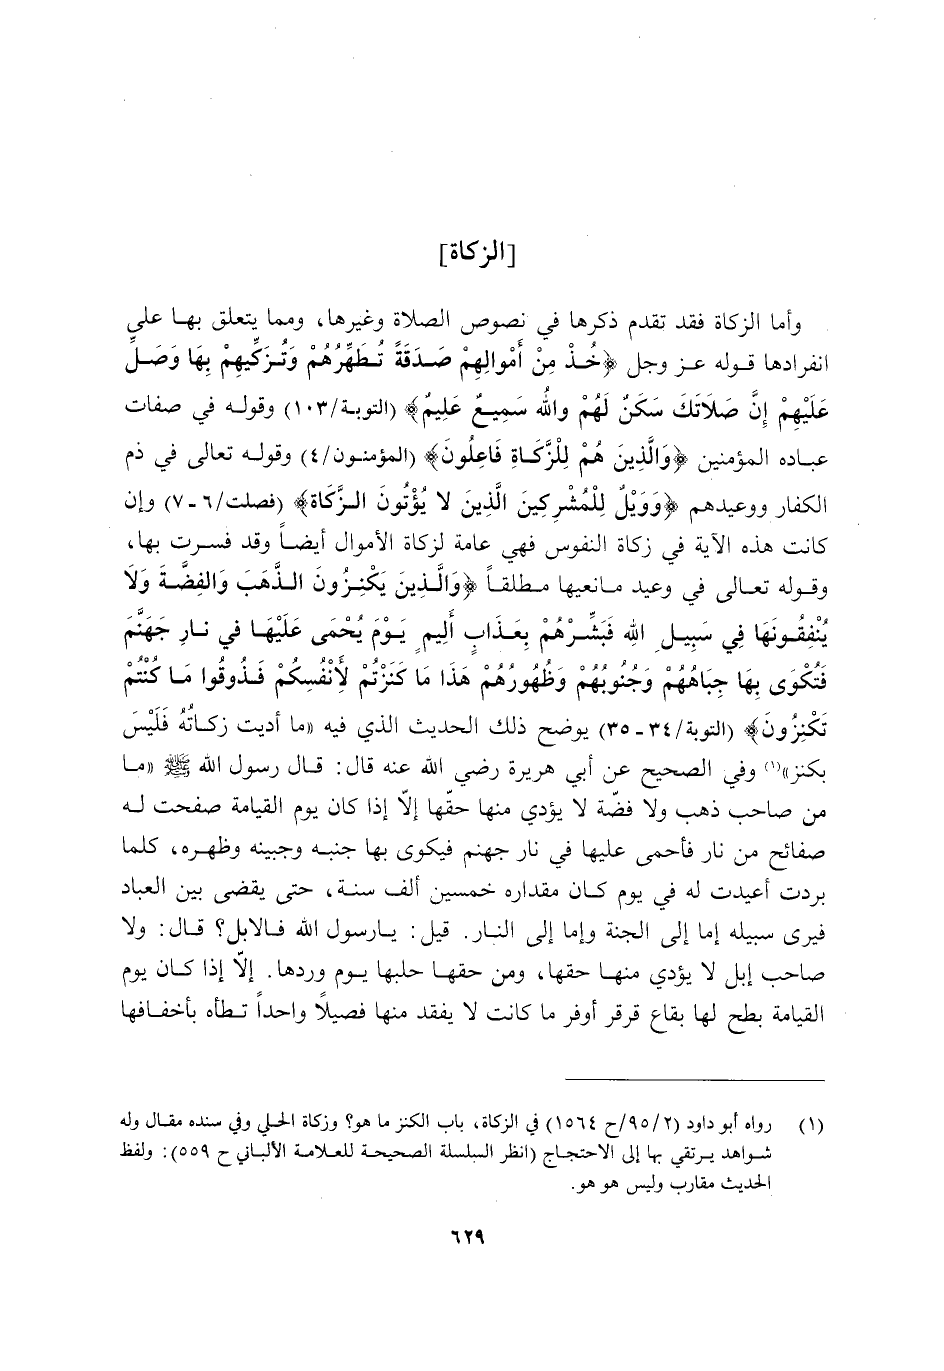 [الزكاة]
وأما الزكاة فقد تقدم ذكرها في نصوص الصلاة وغيرها، ومما يتعلق بها على
انفرادها قوله عز وجل ﴿خُذْ مِنْ أَمْوالِهِمْ صَدَقَةً تُطَهِّرُهُمْ وَتُزَكِّيهِمْ بِهَا وَصَلِّ
عَلَيْهِمْ إِنَّ صَلَاتَكَ سَكَنٌ لَهُمْ واللهُ سَمِيعٌ عَلِيمٌ﴾ (التوبة/١٠٣) وقوله في صفات
عباده المؤمنين ﴿وَالَّذِينَ هُمْ لِلْزَّكَاةِ فَاعِلُونَ﴾ (المؤمنون/٤) وقوله تعالى في ذم
الكفار ووعيدهم ﴿وَوَيْلٌ لِلْمُشْرِكِينَ الَّذِينَ لا يُؤْتُونَ الزَّكَاة﴾ (فصلت/٦ ـ ٧) وإن
كانت هذه الآية في زكاة النفوس فهي عامة لزكاة الأموال أيضاً وقد فسرت بها،
وقوله تعالى في وعيد مانعيها مطلقاً ﴿وَالَّذِينَ يَكْنِزُونَ الذَّهَبَ وَالفِضَّةَ وَلَا
يُنْفِقُونَهَا فِي سَبِيلِ اللهِ فَبَشِّرْهُمْ بِعَذَابٍ أَلِيمٍ يَوْمَ يُحْمَى عَلَيْهَا في نارِ جَهَنَّمَ
فَتُكْوَى بِهَا جِبَاهُهُمْ وَجُنُوبُهُمْ وَظُهُورُهُمْ هَذَا مَا كَنَزْتُمْ لأَنْفُسِكُمْ فَذُوقُوا مَا كُنْتُمْ
تَكْنِزُونَ﴾ (التوبة/٣٤ ـ ٣٥) يوضح ذلك الحديث الذي فيه «ما أديت زكاتُهُ فَلَيْسَ
بكنز»(١) وفي الصحيح عن أبي هريرة رضي الله عنه قال: قال رسول الله ﷺ «ما
من صاحب ذهب ولا فضّة لا يؤدي منها حقّها إلّا إذا كان يوم القيامة صفحت له
صفائح من نار فأحمى عليها في نار جهنم فيكوى بها جنبه وجبينه وظهره، كلما
بردت أعيدت له في يوم كان مقداره خمسين ألف سنة، حتى يقضى بين العباد
فيرى سبيله إما إلى الجنة وإما إلى النار. قيل: يارسول الله فالابل؟ قال: ولا
صاحب إبل لا يؤدي منها حقها، ومن حقها حلبها يوم وردها. إلّا إذا كان يوم
القيامة بطح لها بقاع قرقر أوفر ما كانت لا يفقد منها فصيلاً واحداً تطأه بأخفافها
(١) رواه أبو داود (٢/ ٩٥/ح ١٥٦٤) في الزكاة، باب الكنز ما هو؟ وزكاة الحلي وفي سنده مقال وله
شواهد يرتقي بها إلى الاحتجاج (انظر السلسلة الصحيحة للعلامة الألباني ح ٥٥٩): ولفظ
الحديث مقارب وليس هو هو.
٦٢٩